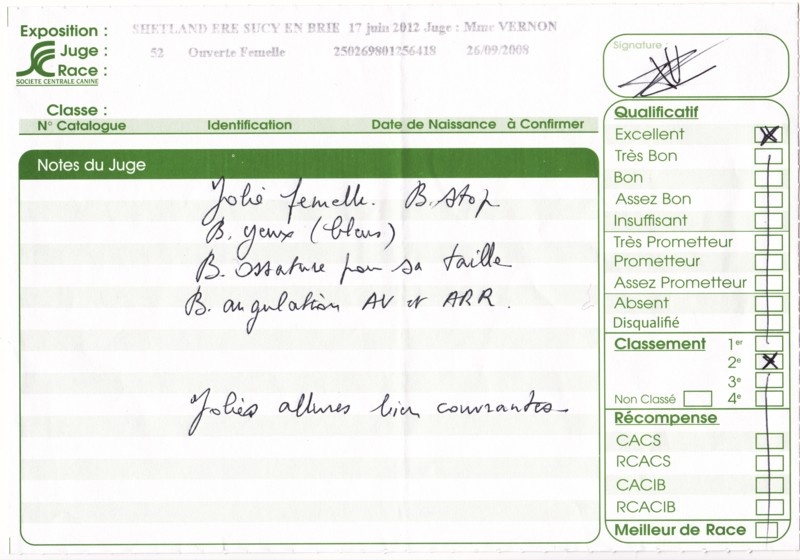 Exposition : SHETLAND ERE SUCY EN BRIE 17 juin 2012 Juge : Mme VERNON
Juge : 52 Ouverte Femelle 250269801256418 26/09/2008
Race :
SOCIETE CENTRALE CANINE
Classe :
N° Catalogue Identification Date de Naissance à Confirmer
Notes du Juge
Jolie femelle. B. stop
B. yeux (bleus)
B. ossature pour sa taille
B. angulation AV et ARR.
Jolies allures bien couvrantes
Signature :
Qualificatif
Excellent X
Très Bon
Bon
Assez Bon
Insuffisant
Très Prometteur
Prometteur
Assez Prometteur
Absent
Disqualifié
Classement 1er
2e X
3e
Non Classé 4e
Récompense
CACS
RCACS
CACIB
RCACIB
Meilleur de Race